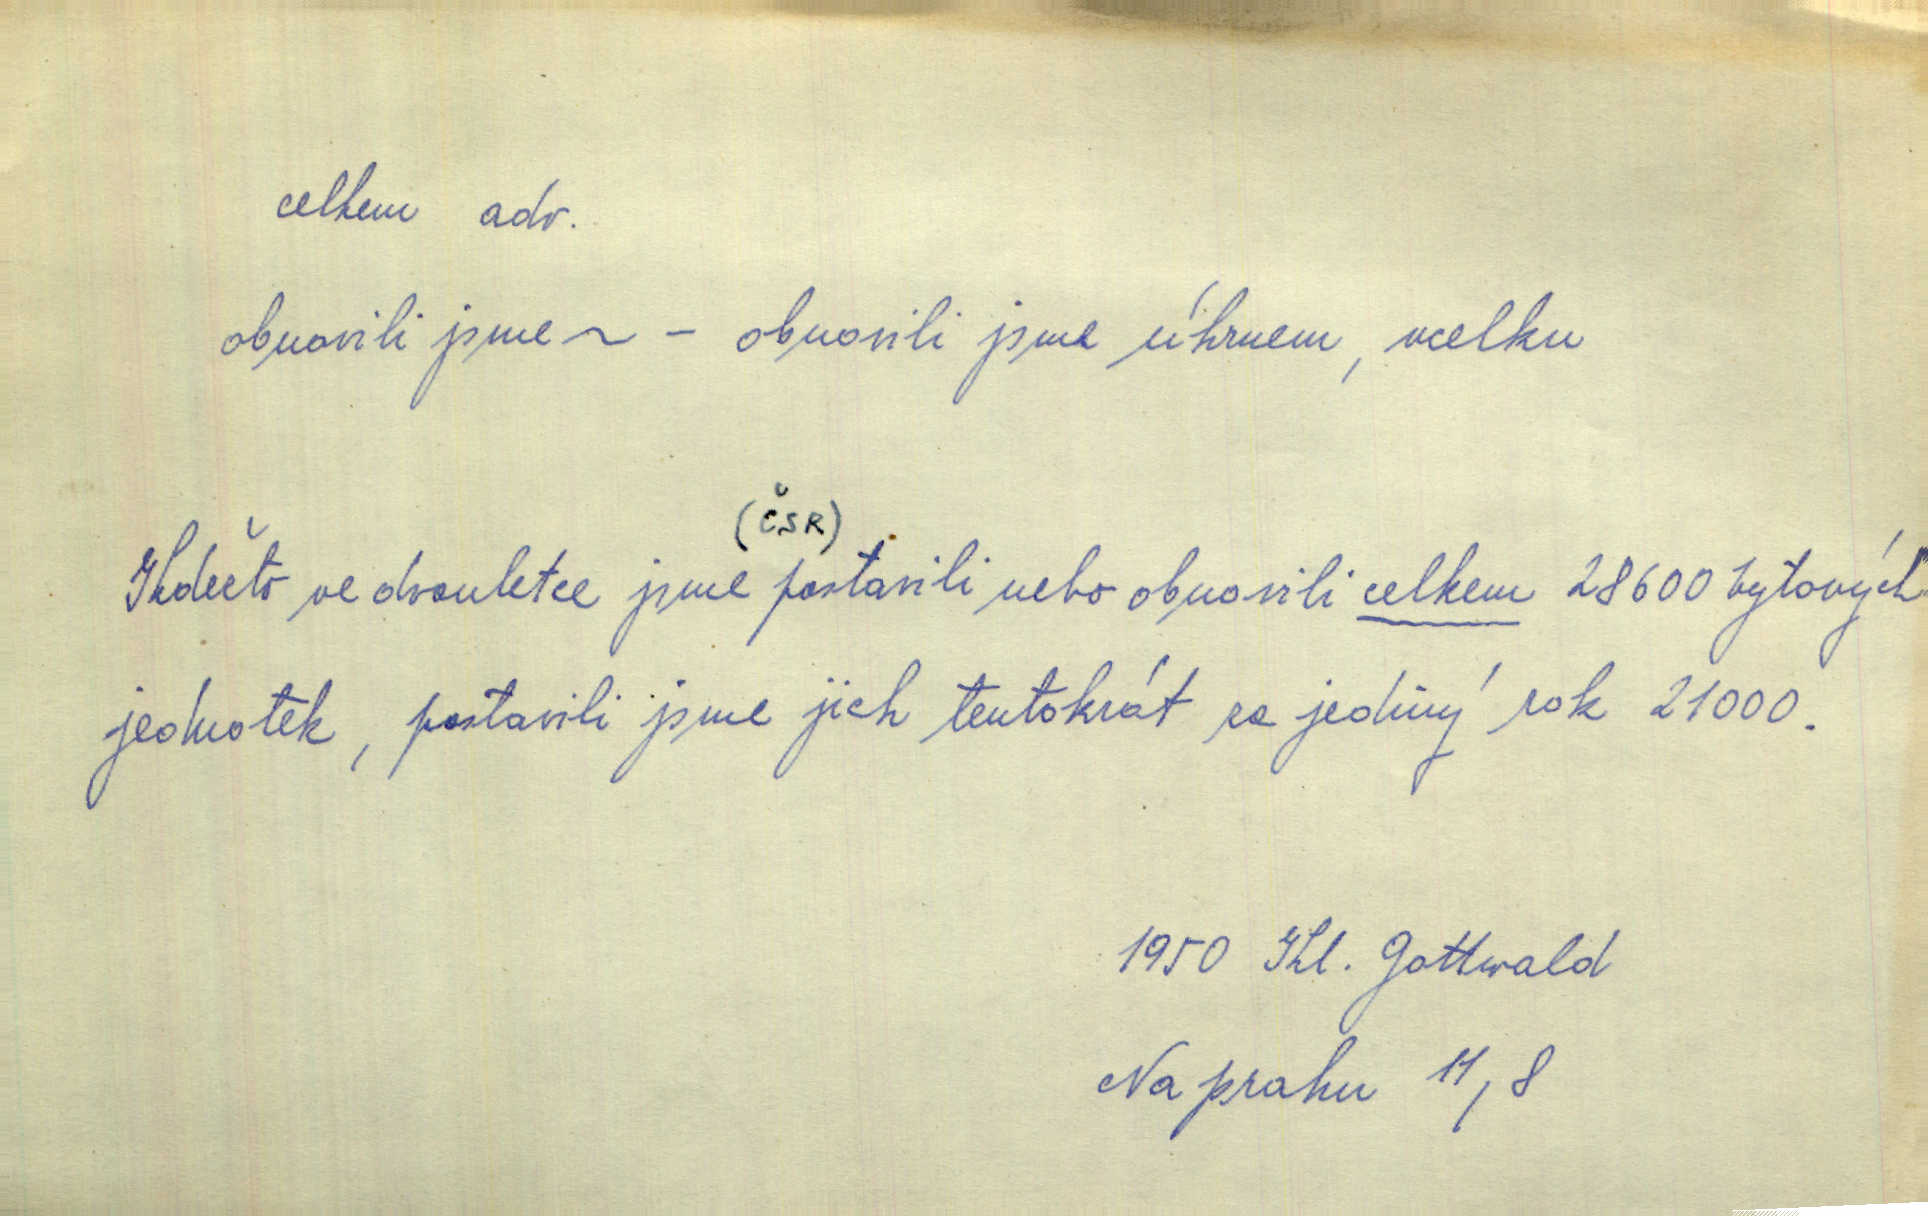 celkem adv.
obnovili jsme ~ – obnovili jsme úhrnem, vcelku
(ČSR)
Kdežto ve dvouletce jsme postavili nebo obnovili celkem 28600 bytových
jednotek, postavili jsme jich tentokrát za jediný rok 21000.
1950 Kl. Gottwald
Na prahu 11,8